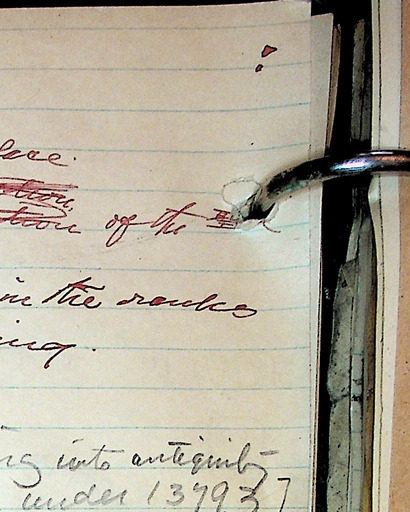 lace.
of the
in the ranks
ing.
ng into antiquity
under 13793]